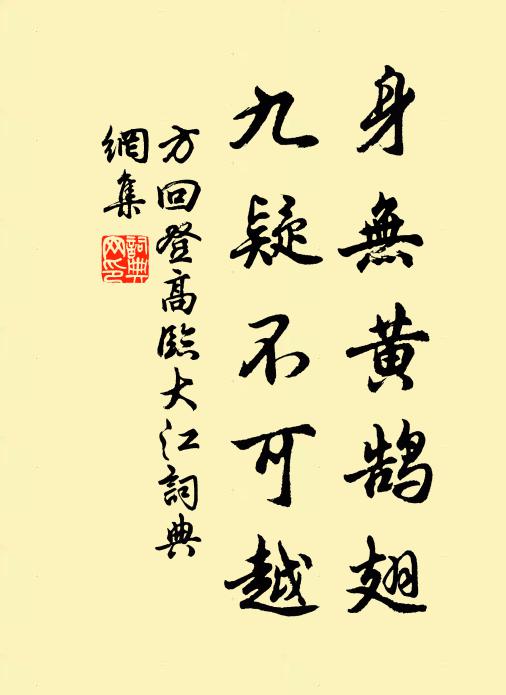 身無黄鹄翅
九疑不可越
方回登高臨大江詞典
網集
詞典
网印